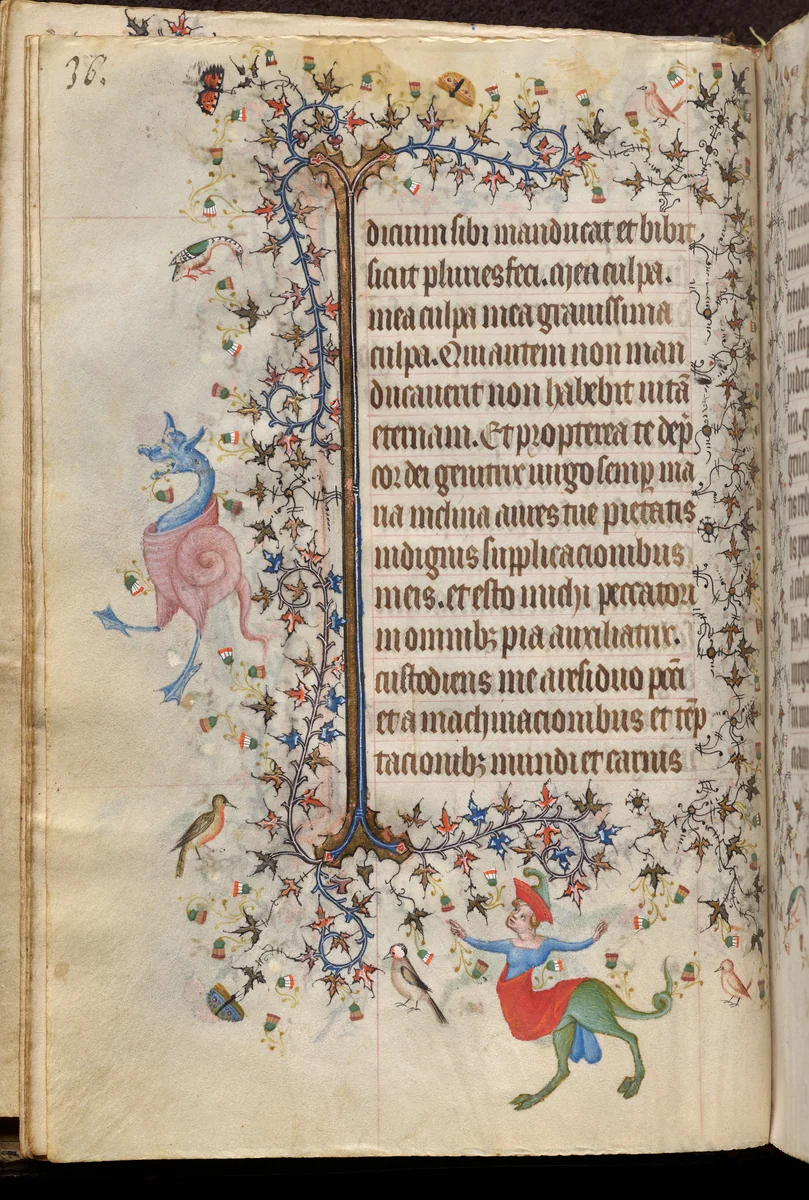 36.
dicium sibi manducat et bibit
sicut pluries feci. Mea culpa.
mea culpa mea grauissima
culpa. Qui autem non man
ducauerit non habebit uitā
eternam. Et propterea te dep̄
cor dei genitrix uirgo semꝑ ma
ria inclina aures tue pietatis
indignis supplicacionibus
meis. et esto michi peccatori
in omnibꝫ pia auxiliatrix.
custodiens me assiduo
et a machinacionibus et tēp
tacionibꝫ mundi et carnis